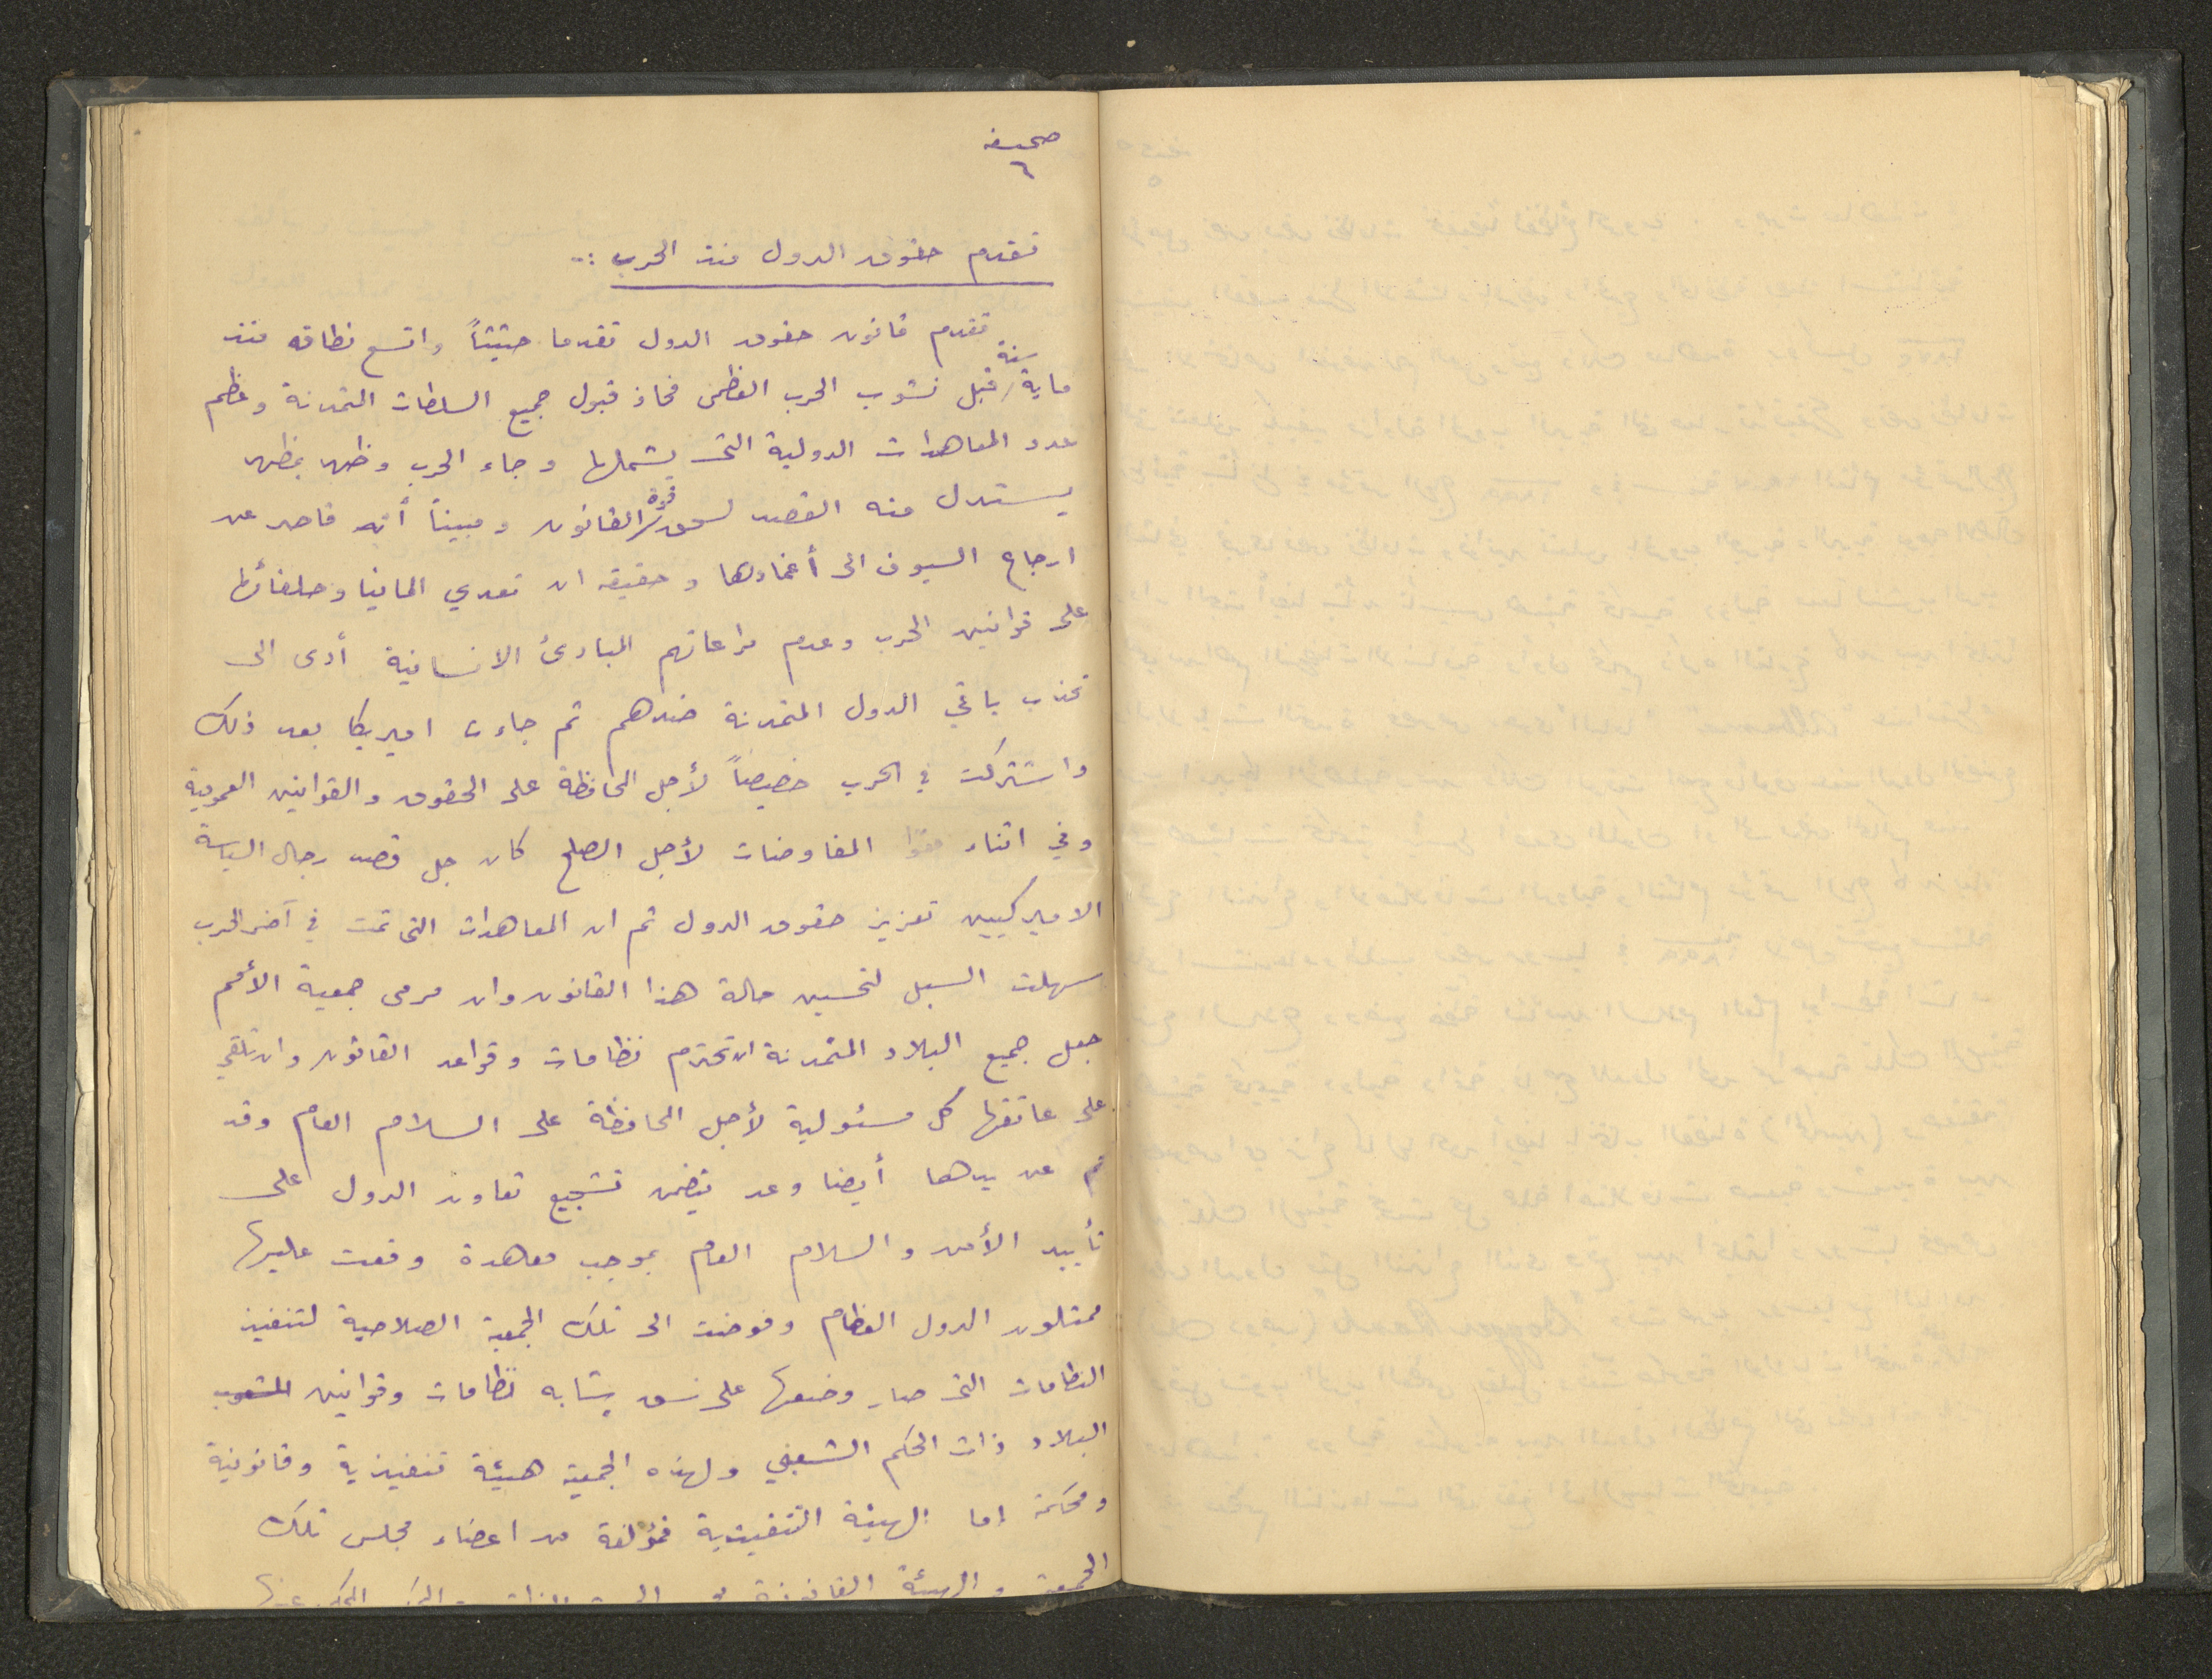 صحيفة
٦
تقدم حقوق الدول منذ الحرب :-
تقدم قانون حقوق الدول تقدما حثيثاً واتسع نطاقه منذ
ماية سنة قبل نشوب الحرب العظمى فحاز قبول جميع السلطات المتمدنة وعظم
عدد المعاهدات الدولية التي يشملها وجاء الحرب وظهر بمظهر
يستدل منه القصد لسحق قوة القانون ومبيناً أنه قاصر عن
ارجاع السيوف الى أغمادها وحقيقة ان تعدي المانيا وحلفائها
على قوانين الحرب وعدم مراعاتهم المبادئ الانسانية أدى الى
تحزب باقي الدول المتمدنة ضدهم ثم جاءت اميريكا بعد ذلك
واشتركت في الحرب خصيصاً لأجل المحافظة على الحقوق والقوانين العمومية
وفي اثناء المفاوضات لأجل الصلح كان جل قصد رجال السياسة
الاميركيين تعزيز حقوق الدول ثم ان المعاهدات التي تمت في آخر الحرب
سهلت السبل لتحسين حالة هذا القانون وان مرمى جمعية الأمم
جعل جميع البلاد المتمدنة ان تحترم نظامات وقواعد القانون وان تلقي
على عاتقها كل مسئولية لأجل المحافظة على السلام العام وقد
تم عن يدها أيضا وعد يتضمن تشجيع تعاون الدول على
تأييد الأمن والسلام العام بموجب معاهدة وقعت عليها
ممثلون الدول العظام وفوضت الى تلك الجمعية الصلاحية لتنفيذ
النظامات التي صار وضعها على نسق يشابه نظامات وقوانين الشعوب
البلاد ذات الحكم الشعبي ولهذه الجمعية هيئة تنفيذية وقانونية
ومحكمة إما الهيئة التنفيذية فمؤلفة من اعضاء مجلس تلك
الجمعية والهيئة القانونية